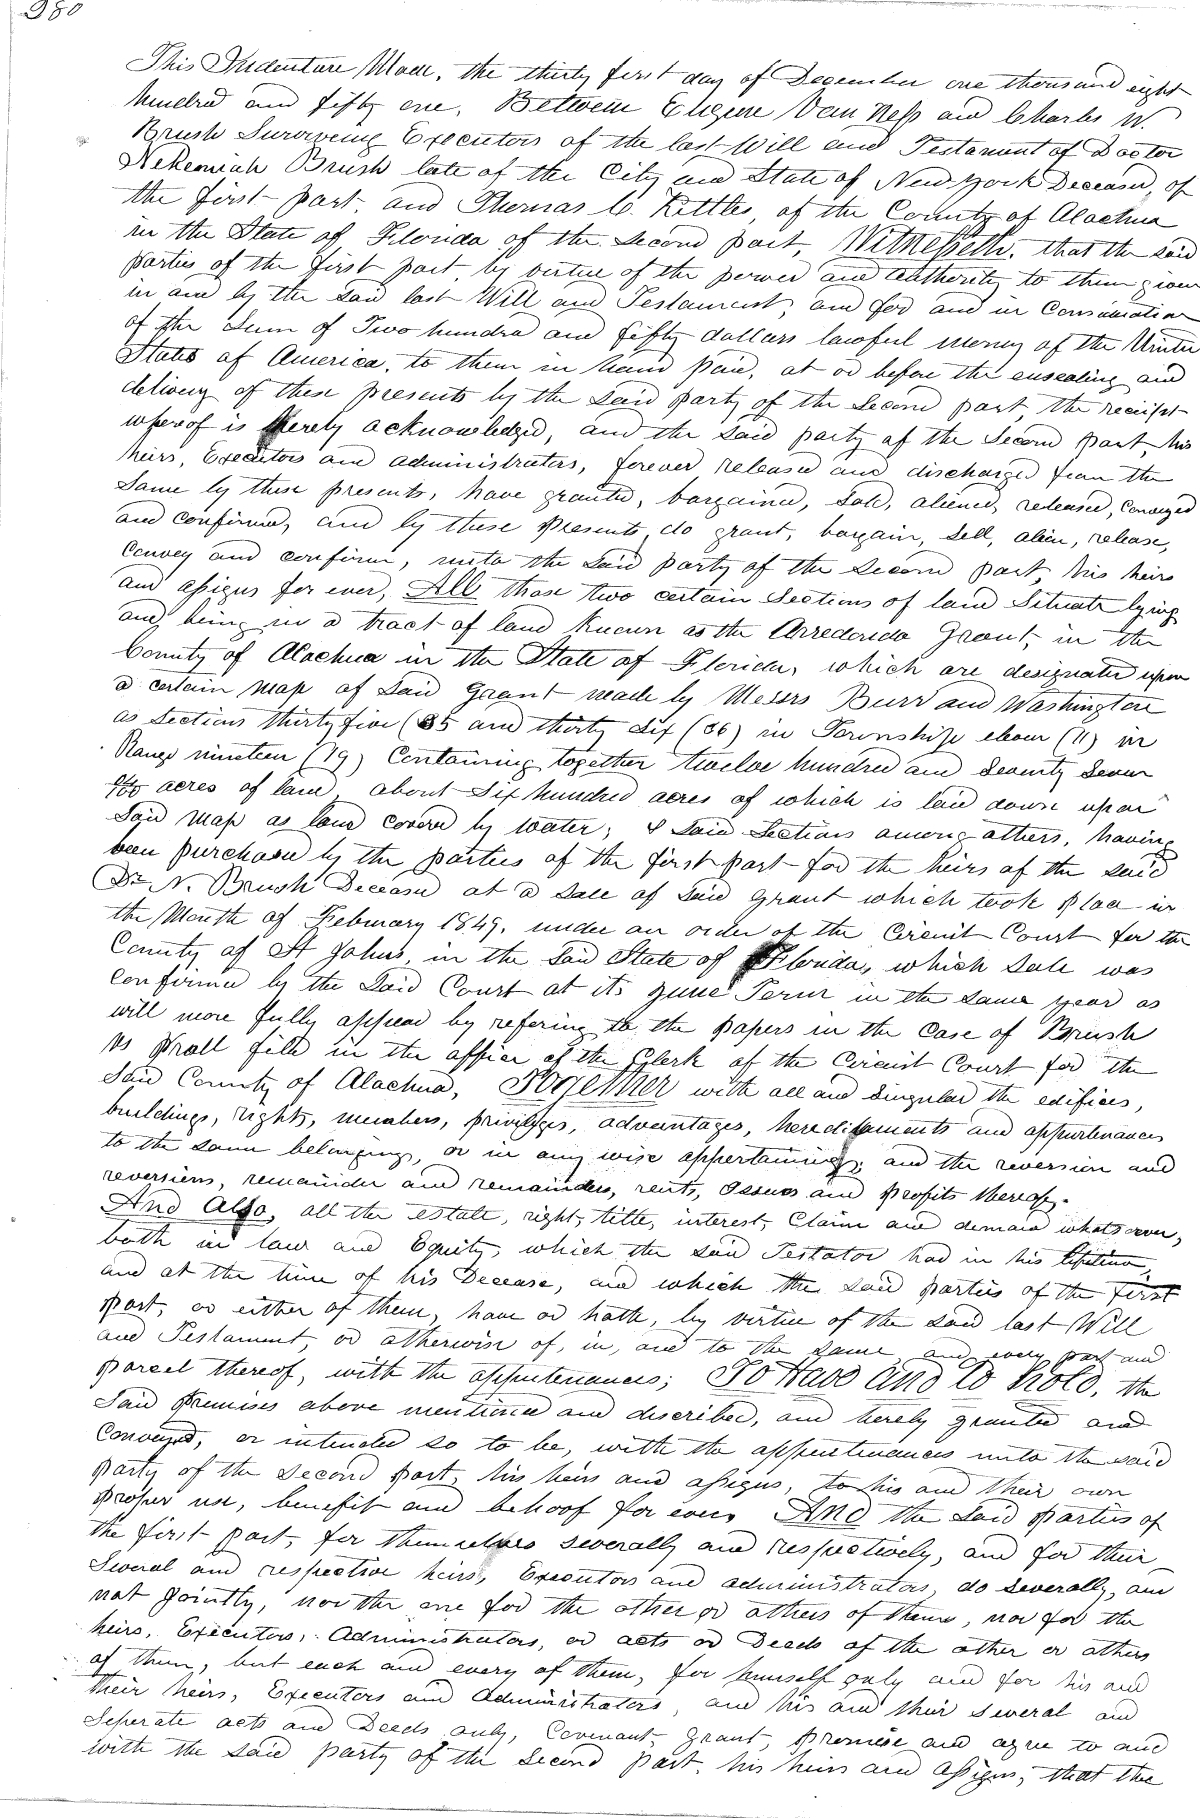 380
This Indenture Made, the thirty first day of December one thousand eight
hundred and fifty one, Between Eugene Van Ness and Charles W.
Brush Surviving Executors of the last Will and Testament of Doctor
Nehemiah Brush late of the City and State of New York Deceased, of
the first part, and Thomas C. Kettles, of the County of Alachua
in the State of Florida of the second part, Witnesseth, that the said
parties of the first part, by virtue of the power and authority to them given
in and by the said last Will and Testament, and for and in Consideration
of the Sum of Two hundred and fifty dollars lawful money of the United
States of America, to them in hand paid, at or before the ensealing and
delivery of these presents by the said party of the second part, the receipt
whereof is hereby acknowledged, and the said party of the second part, his
heirs, Executors and administrators, forever released and discharged from the
Same by these presents, have granted, bargained, sold, aliened, released, conveyed
and confirmed, and by these presents do grant, bargain, sell, alien, release,
Convey and confirm, unto the said party of the second part, his heirs
and assigns for ever, All those two certain Sections of land Situate lying
and being in a tract of land known as the Arredondo Grant, in the
County of Alachua in the State of Florida, which are designated upon
a certain map of said Grant made by Messrs Burr and Washington
as Sections thirty five (35 and thirty Six (36) in Township eleven (11) in
Range nineteen (19) Containing together twelve hundred and Seventy Seven
/100 acres of land, about Six hundred acres of which is laid down upon
Said map as land covered by water; & said Sections among others, having
been purchased by the parties of the first part for the heirs of the said
Dr N. Brush Deceased at a sale of said grant which took place in
the Month of February 1849, under an order of the Circuit Court for the
County of St Johns, in the said State of Florida, which sale was
confirmed by the said Court at its June Term in the same year as
will more fully appear by refering to the papers in the case of Brush
vs Prall filed in the office of the Clerk of the Circuit Court for the
Said County of Alachua, Together with all and Singular the edifices,
buildings, rights, members, privileges, advantages, hereditaments and appurtenances
to the same belonging, or in any wise appertaining, and the reversion and
reversions, remainder and remainders, rents, Issues and profits thereof.
And Also, all the estate, right, title, interest, Claim and demand whatsoever,
both in law and Equity, which the said Testator had in his lifetime,
and at the time of his Decease, and which the said parties of the first
part, or either of them, have or hath, by virtue of the said last Will
and Testament, or otherwise of, in, and to the same, and every part and
parcel thereof, with the appurtenances; To Have And to hold, the
Said Premises above mentioned and discribed, and hereby granted and
Conveyed, or intended so to be, with the appurtenances unto the said
party of the second part, his heirs and assigns, to his and their own
proper use, benefit and behoof for ever. And the said parties of
the first part, for themselves severally and respectively, and for their
Several and respective heirs, Executors and administrators, do severally, and
not jointly, nor the one for the other or others of them, nor for the
heirs, Executors, Administrators, or acts or Deeds of the other or others
of them, but each and every of them, for himself only and for his and
their heirs, Executors and Administrators, and his and their several and
Seperate acts and Deeds only, Covenant, grant, promise and agree to and
with the said party of the second part, his heirs and assigns, that the